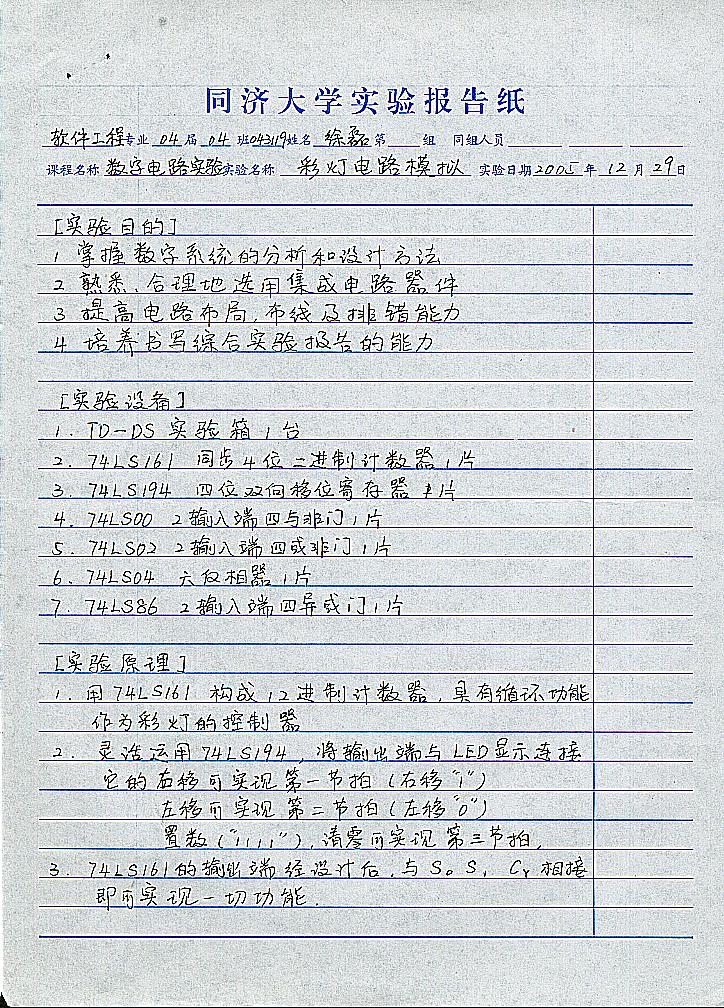 同济大学实验报告纸
软件工程专业 04 届 04 班043119姓名 徐磊 第 组 同组人员
课程名称 数字电路实验 实验名称 彩灯电路模拟 实验日期 2005 年 12 月 29 日
[实验目的]
1 掌握数字系统的分析和设计方法
2 熟悉、合理地选用集成电路器件
3 提高电路布局,布线及排错能力
4 培养书写综合实验报告的能力
[实验设备]
1. TD-DS 实验箱 1台
2. 74LS161 同步4位二进制计数器 1片
3. 74LS194 四位双向移位寄存器 片
4. 74LS00 2输入端四与非门 1片
5. 74LS02 2输入端四或非门 1片
6. 74LS04 六反相器 1片
7. 74LS86 2输入端四异或门 1片
[实验原理]
1. 用74LS161 构成12进制计数器,具有循环功能
作为彩灯的控制器
2. 灵活运用74LS194,将输出端与LED显示连接
它的右移可实现第一节拍(右移"1")
左移可实现第二节拍(左移"0")
置数("1111"),清零可实现第三节拍,
3. 74LS161的输出端经设计后,与S0 S1 Cr相接
即可实现一切功能.